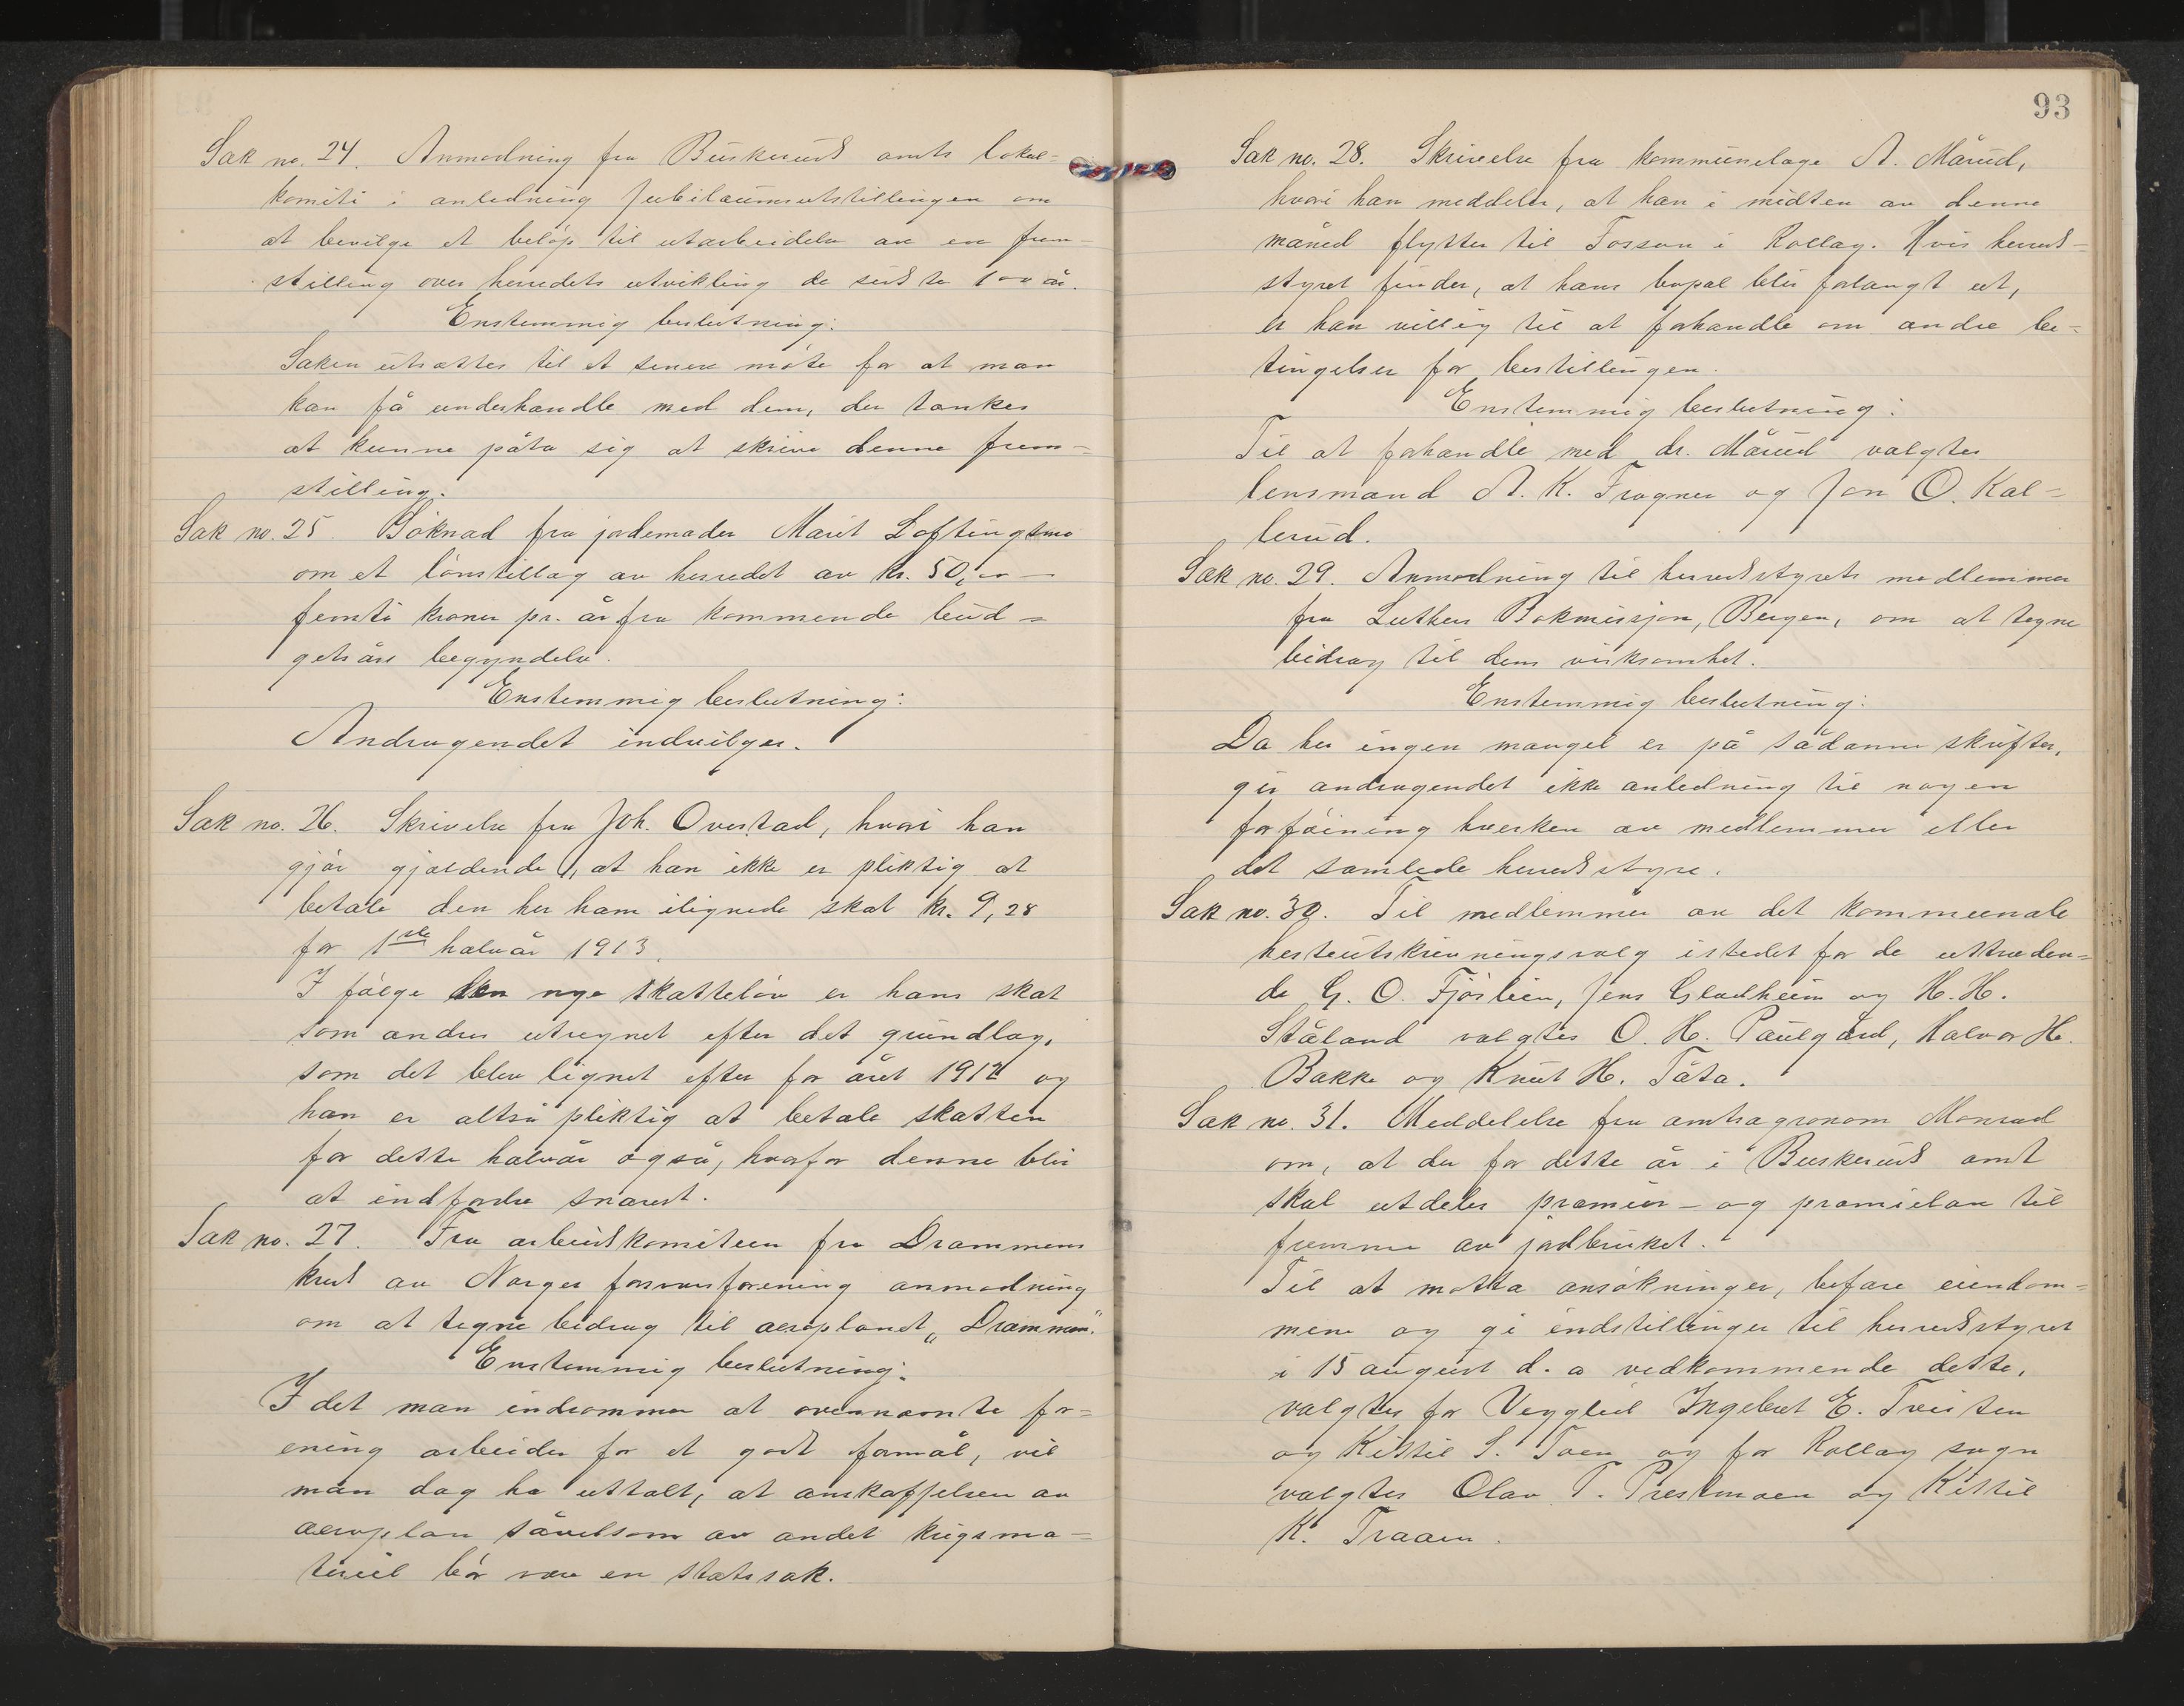 Sak no. 24. Anmodning fra Buskeruds amts lokal-
komite i anledning Jubilæumsutstillingen om
at bevilge et beløp til utarbeidelse av en frem-
stilling over herredets utvikling de sidste 100 år.
Enstemmig beslutning:
Saken utsættes til et senere møte for at man
kan få underhandle med dem, der tænkes
at kunne påta sig at skrive denne frem-
stilling.
Sak no. 25. Søknad fra jordemoder Marit Loftingsmo
om et lønstillæg av herredet av kr. 50,00 -
femti kroner pr. år fra kommende bud-
getårs begyndelse.
Enstemmig beslutning:
Andragendet indvilges.
Sak no. 26. Skrivelse fra Joh. Overstad, hvori han
gjør gjældende, at han ikke er pliktig at
betale den her ham ilignede skat kr. 9,28
for 1ste halvår 1913.
I følge den nye skattelov er hans skat
som andres utregnet efter det grundlag,
som det blev lignet efter for året 1912 og
han er altså pliktig at betale skatten
for dette halvår også, hvorfor denne blir
at indfordre snarest.
Sak no. 27. Fra arbeidskomiteen fra Drammens
kreds av Norges forsvarsforening anmodning
om at tegne bidrag til aeroplanet „Drammen“.
Enstemmig beslutning:
I det man indrømmer at ovennævnte for-
ening arbeider for et godt formål, vil
man dog ha uttalt, at anskaffelsen av
aeroplan såvelsom av andet krigsma-
teriel bør være en statssak.
93
Sak no. 28. Skrivelse fra kommunelæge A. Mårud,
hvori han meddeler, at han i midten av denne
måned flytter til Fosson i Rollag. Hvis herreds-
styret finder, at hans bopæl blir forlangt ut,
er han villig til at forhandle om andre be-
tingelser for bestillingen.
Enstemmig beslutning:
Til at forhandle med dr. Mårud valgtes
lensmand A. K. Fragner og Jon O. Kal-
lerud.
Sak no. 29. Anmodning til herredsstyrets medlemmer
fra Luthers Bokmissjon, Bergen, om at tegne
bidrag til dens virksomhet.
Enstemmig beslutning:
Da her ingen mangel er på sådanne skrifter,
gir andragendet ikke anledning til nogen
forføining hverken av medlemmer eller
det samlede herredsstyre.
Sak no. 30. Til medlemmer av det kommunale
hesteutskrivningsvalg istedet for de uttræden-
de G. O. Fjøslien, Jens Gladheim og H. H.
Ståland valgtes O. H. Paulgård, Halvor H.
Bakke og Knut H. Tåta.
Sak no. 31. Meddelelse fra amtsagronom Monrad
om, at der for dette år i Buskeruds amt
skal utdeles præmier- og præmielån til
fremme av jordbruket.
Til at motta ansøkninger, befare eiendom-
mene og gi indstillinger til herredsstyret
i 15 august d. a vedkommende dette,
valgtes for Veggli Ingebret E. Tveiten
og Kittil S. Toen og for Rollag sogn
valgtes Olav T. Prestmoen og Kittil
K. Traaen.